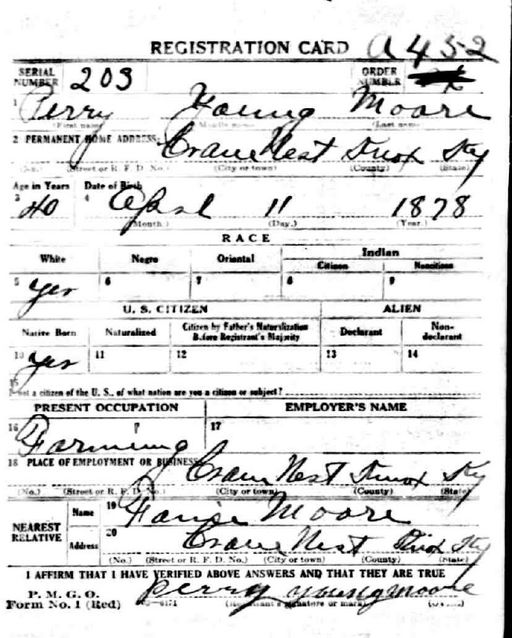 REGISTRATION CARD A 452
SERIAL NUMBER 203 ORDER NUMBER
1 Perry Young Moore
(First name) (Middle name) (Last name)
2 PERMANENT HOME ADDRESS: Crane Nest Knox Ky
(No.) (Street or R. F. D. No.) (City or town) (County) (State)
Age in Years Date of Birth
3 40 4 April 11 1878
(Month.) (Day.) (Year.)
RACE
White Negro Oriental Indian
Citizen Noncitizen
5 Yes 6 7 8 9
U. S. CITIZEN ALIEN
Native Born Naturalized Citizen by Father's Naturalization Before Registrant's Majority Declarant Non-declarant
10 Yes 11 12 13 14
15 If not a citizen of the U. S., of what nation are you a citizen or subject?
PRESENT OCCUPATION EMPLOYER'S NAME
16 Farming 17
18 PLACE OF EMPLOYMENT OR BUSINESS: Crane Nest Knox Ky
(No.) (Street or R. F. D. No.) (City or town) (County) (State)
NEAREST RELATIVE Name 19 Moore
Address 20 Crane Nest Knox Ky
(No.) (Street or R. F. D. No.) (City or town) (County) (State)
I AFFIRM THAT I HAVE VERIFIED ABOVE ANSWERS AND THAT THEY ARE TRUE
P. M. G. O.
Form No. 1 (Red) Perry Young Moore
(Registrant's signature or mark)